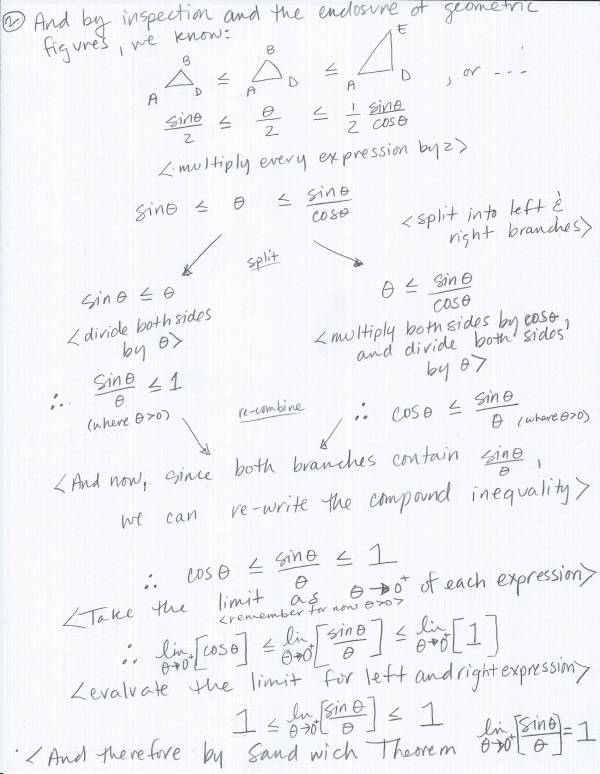 ② And by inspection and the enclosure of geometric
figures, we know:
B B E
≤ ≤
A D A D A D , or ...
sinθ/2 ≤ θ/2 ≤ 1/2 sinθ/cosθ
<multiply every expression by 2>
sinθ ≤ θ ≤ sinθ/cosθ
<split into left &
right branches>
split
sinθ ≤ θ
<divide both sides
by θ>
∴ sinθ/θ ≤ 1
(where θ>0)
θ ≤ sinθ/cosθ
<multiply both sides by cosθ,
and divide both sides
by θ>
∴ cosθ ≤ sinθ/θ (where θ>0)
re-combine
<And now, since both branches contain sinθ/θ,
we can re-write the compound inequality>
∴ cosθ ≤ sinθ/θ ≤ 1
<Take the limit as θ→0⁺ of each expression>
<remember for now θ>0>
∴ lim θ→0⁺ [cosθ] ≤ lim θ→0⁺ [sinθ/θ] ≤ lim θ→0⁺ [1]
<evaluate the limit for left and right expression>
1 ≤ lim θ→0⁺ [sinθ/θ] ≤ 1
<And therefore by Sandwich Theorem lim θ→0⁺ [sinθ/θ] = 1